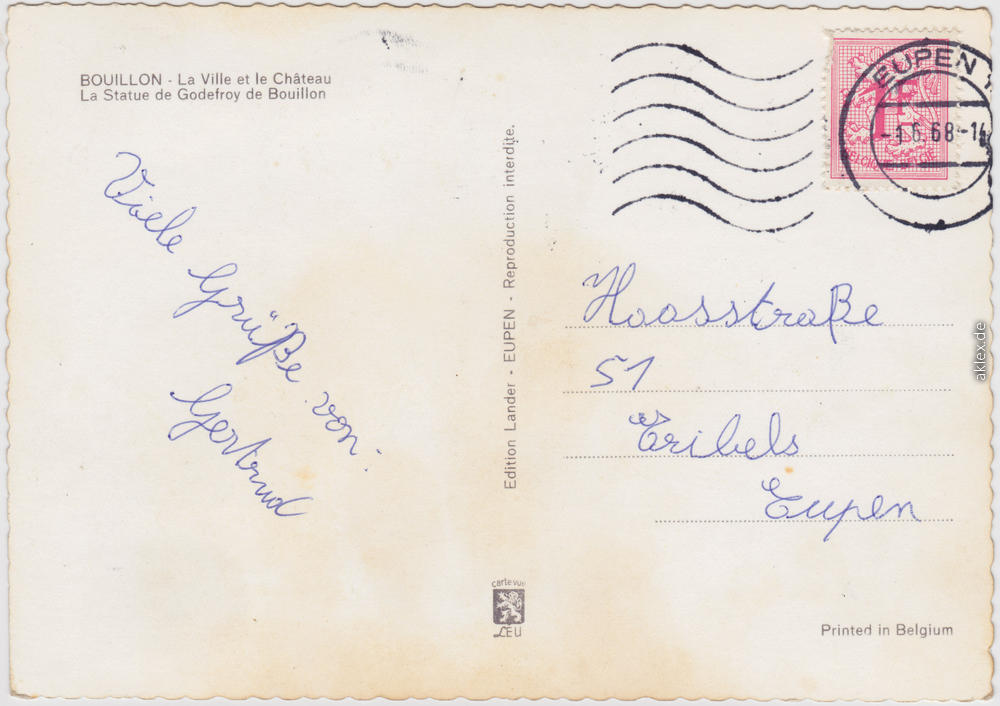 BOUILLON - La Ville et le Château
La Statue de Godefroy de Bouillon
Viele Grüße von:
Gertrud
Edition Lander - EUPEN - Reproduction interdite.
carte vue
LEU
EUPEN 1
-1.6.68-14
1F
Haasstraße
51
Eribels
Eupen
Printed in Belgium
aklex.de